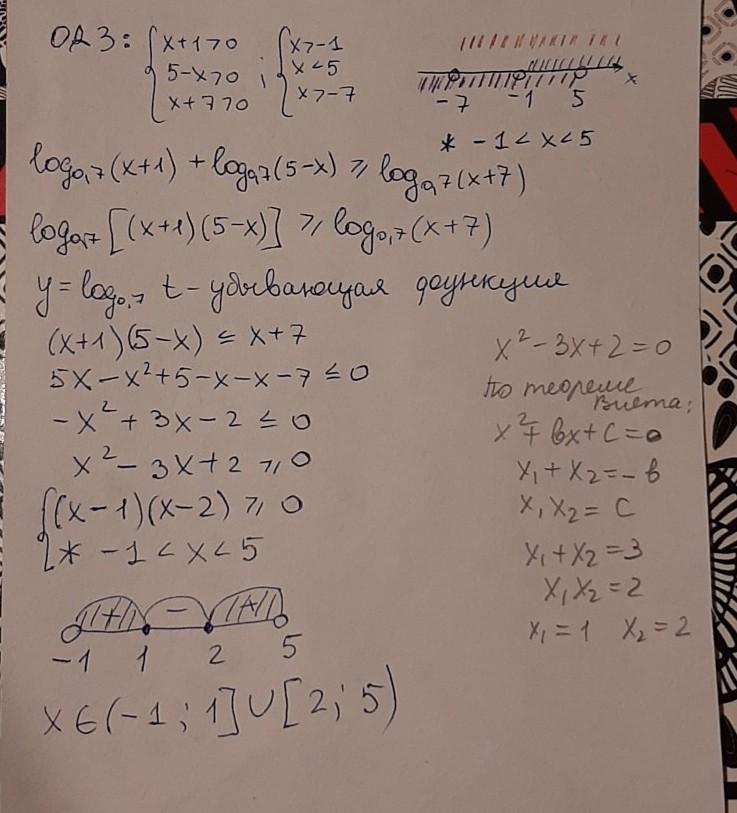 ОДЗ: { x+1>0 ; { x>-1
5-x>0 x<5
x+7>0 x>-7
-7 -1 5 x
* -1<x<5
log₀,₇(x+1) + log₀,₇(5-x) ⩾ log₀,₇(x+7)
log₀,₇[(x+1)(5-x)] ⩾ log₀,₇(x+7)
y=log₀,₇ t - убывающая функция
(x+1)(5-x) ≤ x+7
5x-x²+5-x-x-7 ≤ 0
-x²+3x-2 ≤ 0
x²-3x+2 ⩾ 0
{ (x-1)(x-2) ⩾ 0
* -1<x<5
+ - +
-1 1 2 5
x∈(-1; 1]∪[2; 5)
x²-3x+2=0
По теореме
Виета:
x²+bx+c=0
x₁+x₂=-b
x₁x₂=c
x₁+x₂=3
x₁x₂=2
x₁=1 x₂=2